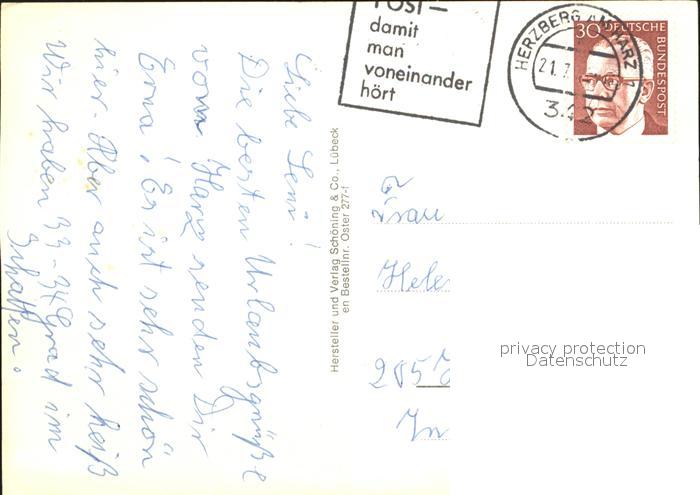 Liebe Leni!
Die besten Urlaubsgrüße
vom Harz senden Dir
Erna! Es ist sehr schön
hier. Aber auch sehr heiß
Wir haben 33-34 Grad im
Schatten.
Hersteller und Verlag Schöning & Co., Lübeck
en Bestellnr. Oster 277-f
POST –
damit
man
voneinander
hört
HERZBERG AM HARZ 1
21.7.
30 DEUTSCHE
BUNDESPOST
Frau
Hele
205
In
privacy protection
Datenschutz